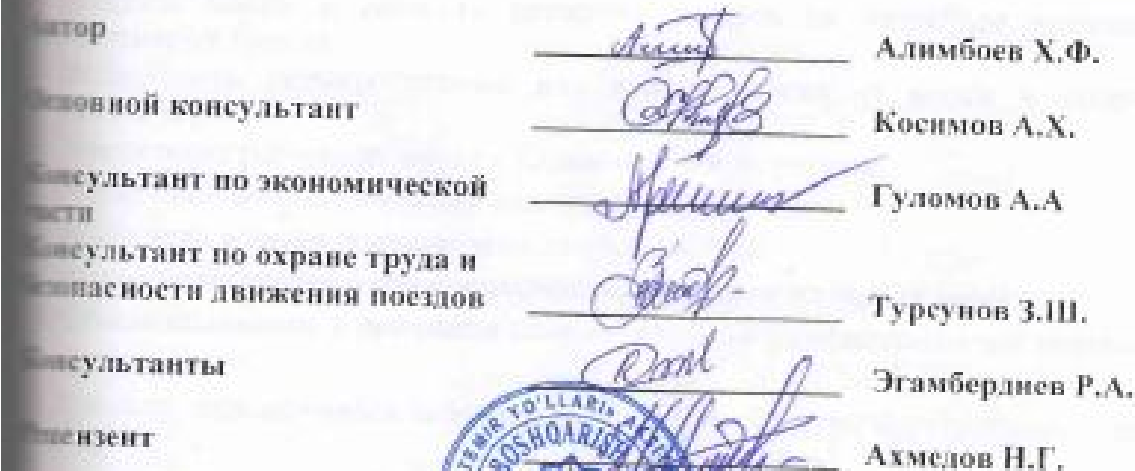 Автор Алимбоев Х.Ф.
Основной консультант Косимов А.Х.
Консультант по экономической части Гуломов А.А
Консультант по охране труда и
безопасности движения поездов Турсунов З.Ш.
Консультанты Эгамбердиев Р.А.
Рецензент Ахмедов Н.Г.
TEMIR YO'LLARI
BOSHQARISH